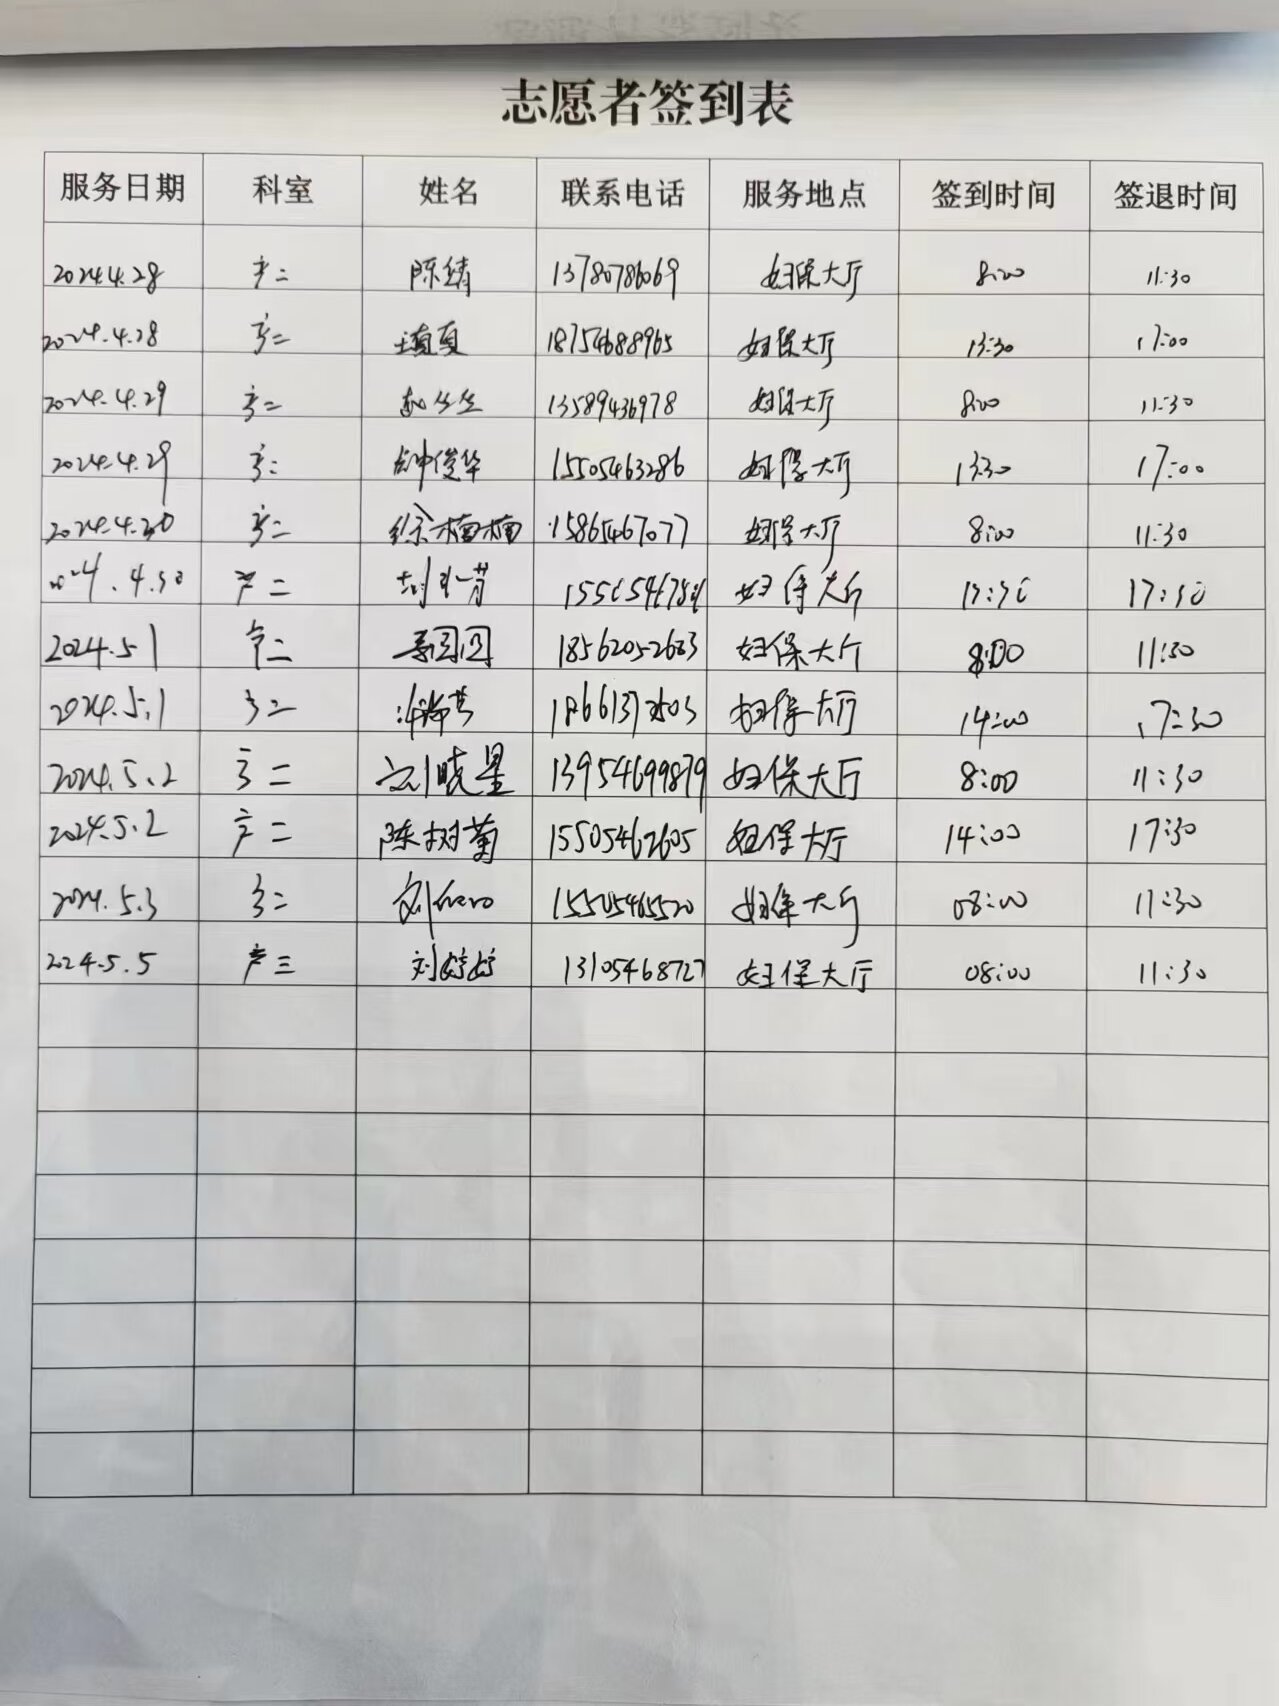 志愿者签到表
服务日期 科室 姓名 联系电话 服务地点 签到时间 签退时间
2024.4.28 产二 陈婧 13780786069 妇保大厅 8:00 11:30
2024.4.28 产二 夏 18754688965 妇保大厅 13:30 17:00
2024.4.29 产二 13589436978 妇保大厅 8:00 11:30
2024.4.29 产二 俊华 15505463286 妇保大厅 13:30 17:00
2024.4.30 产二 徐楠楠 15865467077 妇保大厅 8:00 11:30
2024.4.30 产二 妇保大厅 13:30 17:30
2024.5.1 产二 圆圆 妇保大厅 8:00 11:30
2024.5.1 产二 妇保大厅 14:00 17:30
2024.5.2 产二 刘晓星 13954699879 妇保大厅 8:00 11:30
2024.5.2 产二 陈树菊 15505462605 妇保大厅 14:00 17:30
2024.5.3 产二 刘 15505465520 妇保大厅 08:00 11:30
2024.5.5 产三 刘婷婷 13105468727 妇保大厅 08:00 11:30